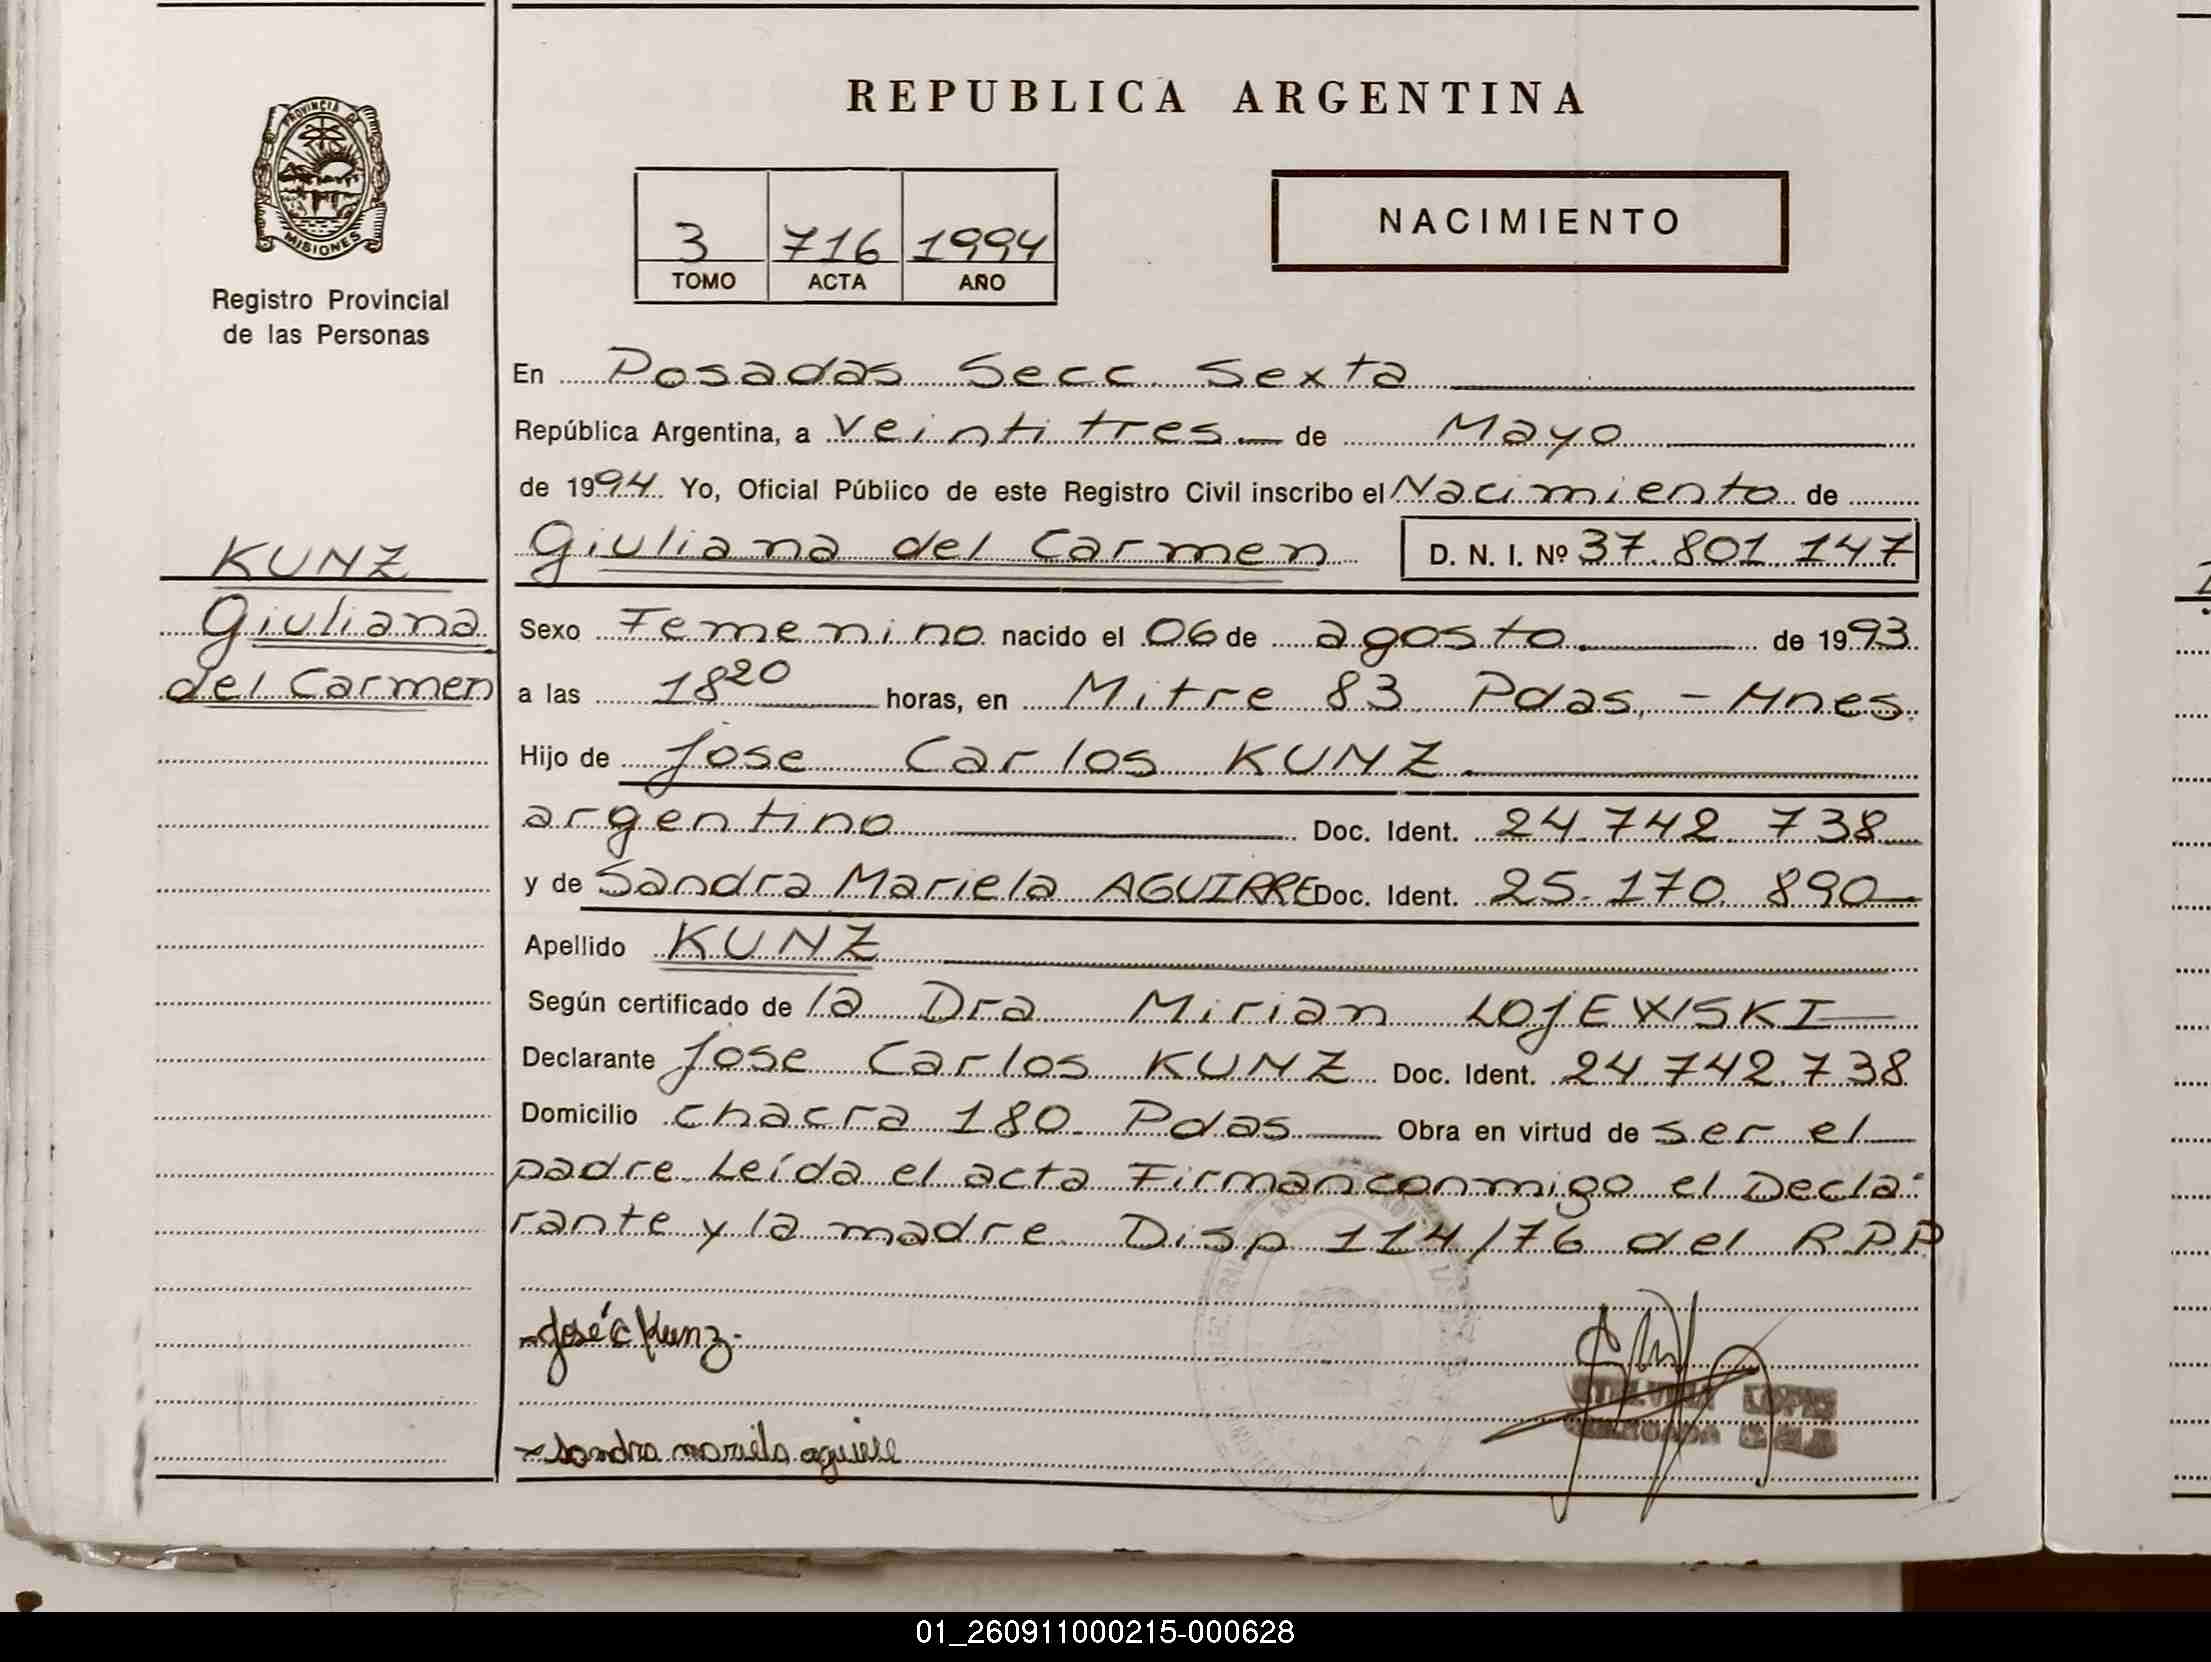 REPUBLICA ARGENTINA
PROVINCIA DE
MISIONES
Registro Provincial
de las Personas
3 716 1994
TOMO ACTA AÑO
NACIMIENTO
En Posadas Secc. Sexta
República Argentina, a Veintitres de Mayo
de 1994. Yo, Oficial Público de este Registro Civil inscribo el Nacimiento de
Giuliana del Carmen D. N. I. Nº 37.801.147
KUNZ
Giuliana
del Carmen
Sexo Femenino nacido el 06 de agosto de 1993
a las 18 20 horas, en Mitre 83 Pdas. - Mnes.
Hijo de Jose Carlos KUNZ
argentino Doc. Ident. 24.742.738
y de Sandra Mariela AGUIRRE Doc. Ident. 25.170.890
Apellido KUNZ
Según certificado de la Dra Mirian LOJEWISKI
Declarante Jose Carlos KUNZ Doc. Ident. 24.742.738
Domicilio chacra 180 Pdas Obra en virtud de ser el
padre. Leída el acta Firman conmigo el Decla-
rante y la madre. Disp 114/76 del RPP
José C Kunz
Sandra mariela aguirre
01_260911000215-000628